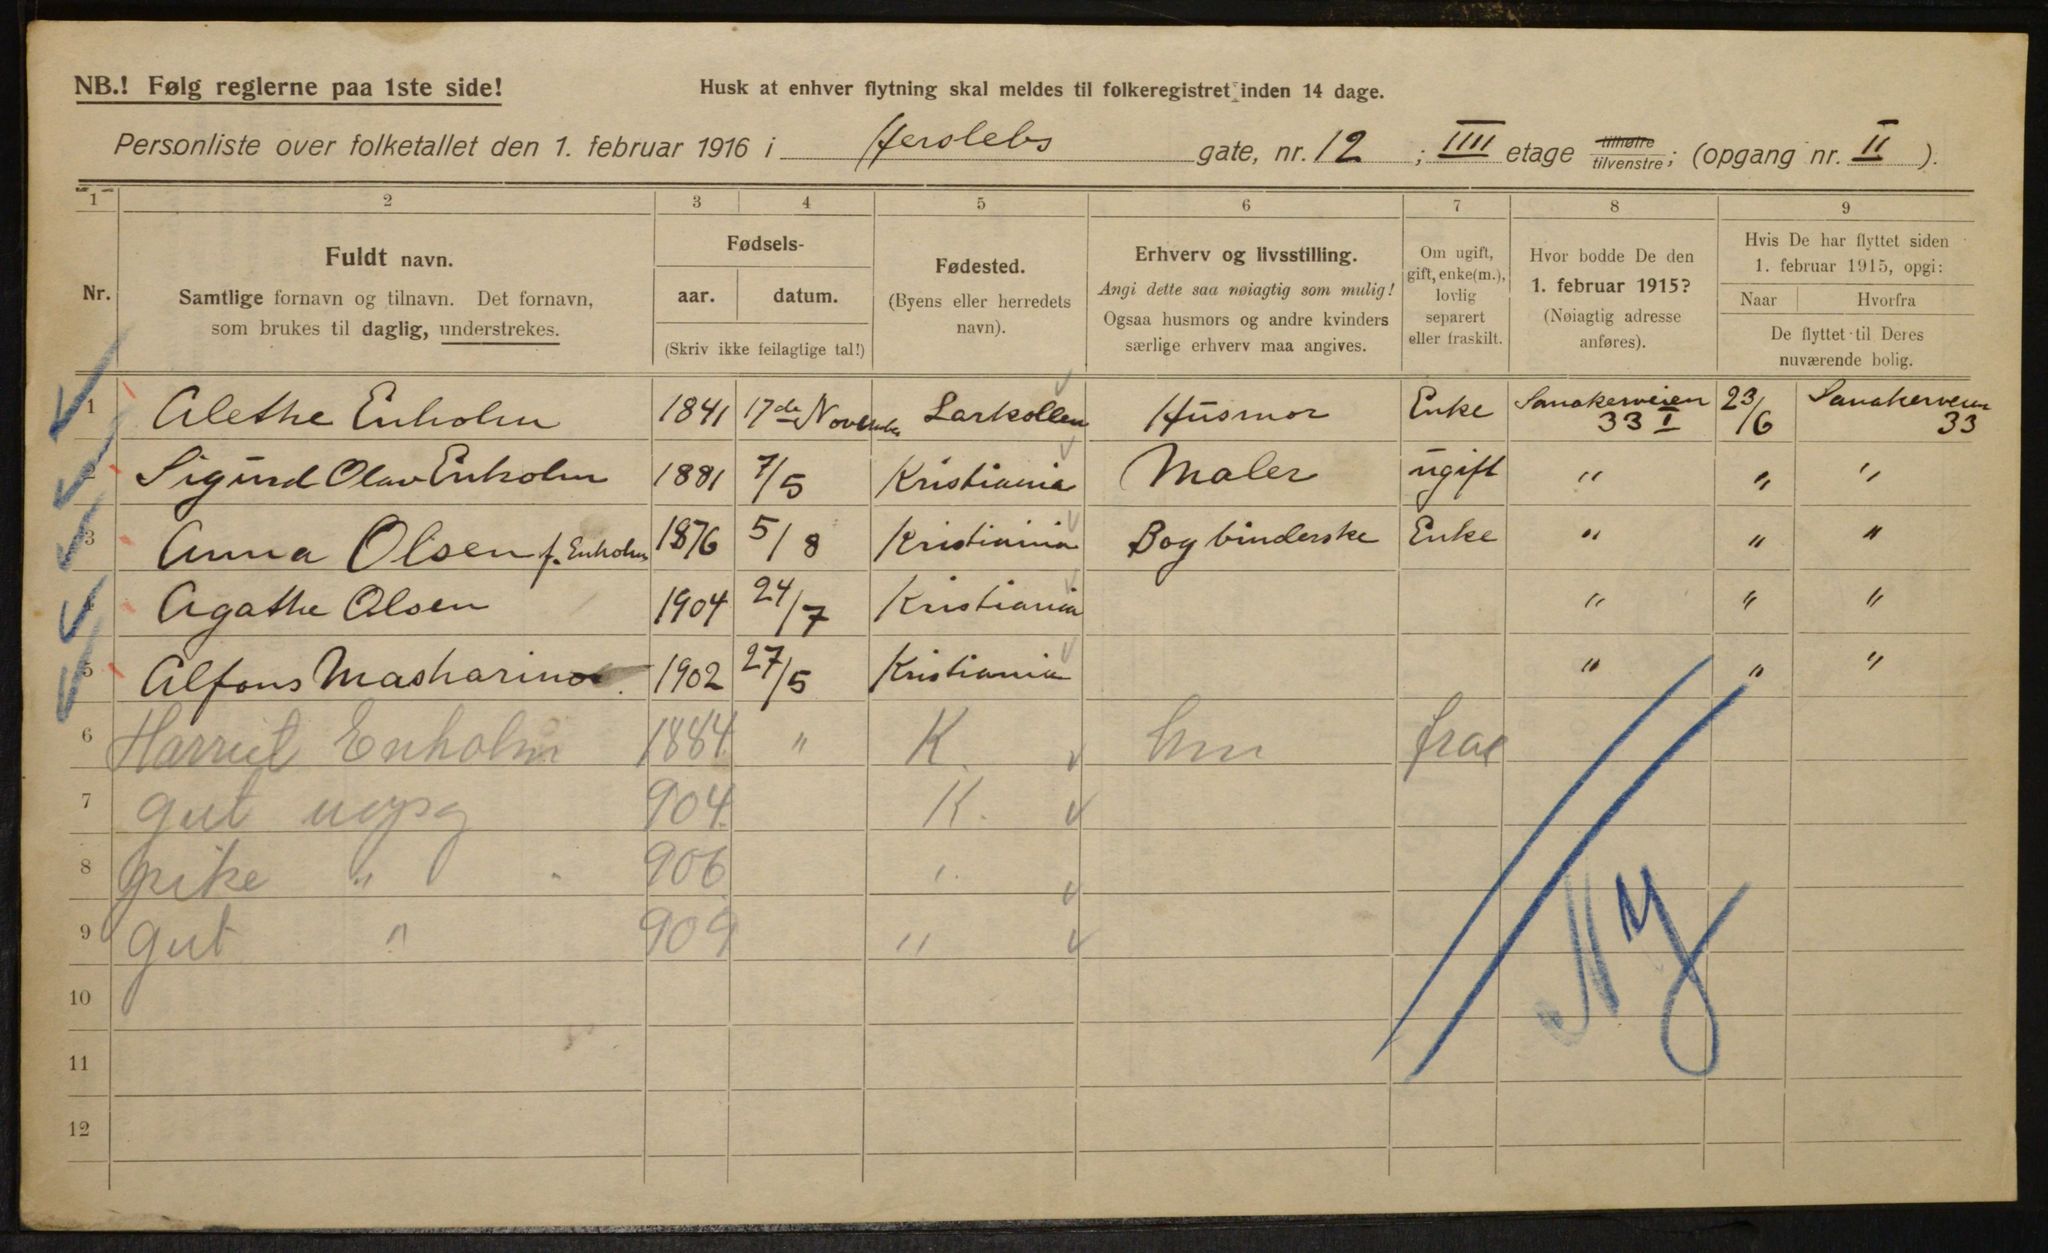 NB.! Følg reglerne paa 1ste side!
Husk at enhver flytning skal meldes til folkeregistret inden 14 dage.
Personliste over folketallet den 1. februar 1916 i Herslebs gate, nr. 12 ; IIII etage tilhøire tilvenstre; (opgang nr. II ).
1 2 3 4 5 6 7 8 9
Nr.
Fuldt navn.
Samtlige fornavn og tilnavn. Det fornavn,
som brukes til daglig, understrekes.
Fødsels-
aar. datum.
(Skriv ikke feilagtige tal!)
Fødested.
(Byens eller herredets
navn).
Erhverv og livsstilling.
Angi dette saa nøiagtig som mulig!
Ogsaa husmors og andre kvinders
særlige erhverv maa angives.
Om ugift,
gift, enke(m.),
lovlig
separert
eller fraskilt.
Hvor bodde De den
1. februar 1915?
(Nøiagtig adresse
anføres).
Hvis De har flyttet siden
1. februar 1915, opgi:
Naar Hvorfra
De flyttet til Deres
nuværende bolig.
1 Alethe Enholm 1841 17de November Larkollen Husmor Enke Sanakerveien 33 I 23/6 Sanakerveien 33
2 Sigurd Olav Enholm 1881 7/5 Kristiania Maler ugift " " "
3 Anna Olsen f. Enholm 1876 5/8 Kristiania Bogbinderske Enke " " "
4 Agathe Olsen 1904 24/7 Kristiania " " "
5 Alfons Masharino 1902 27/5 Kristiania " " "
6 Harriet Enholm 1884 " K. hm
7 gut uopg 904. K.
8 pike " 906 "
9 gut " 909 "
10
11
12
Ny